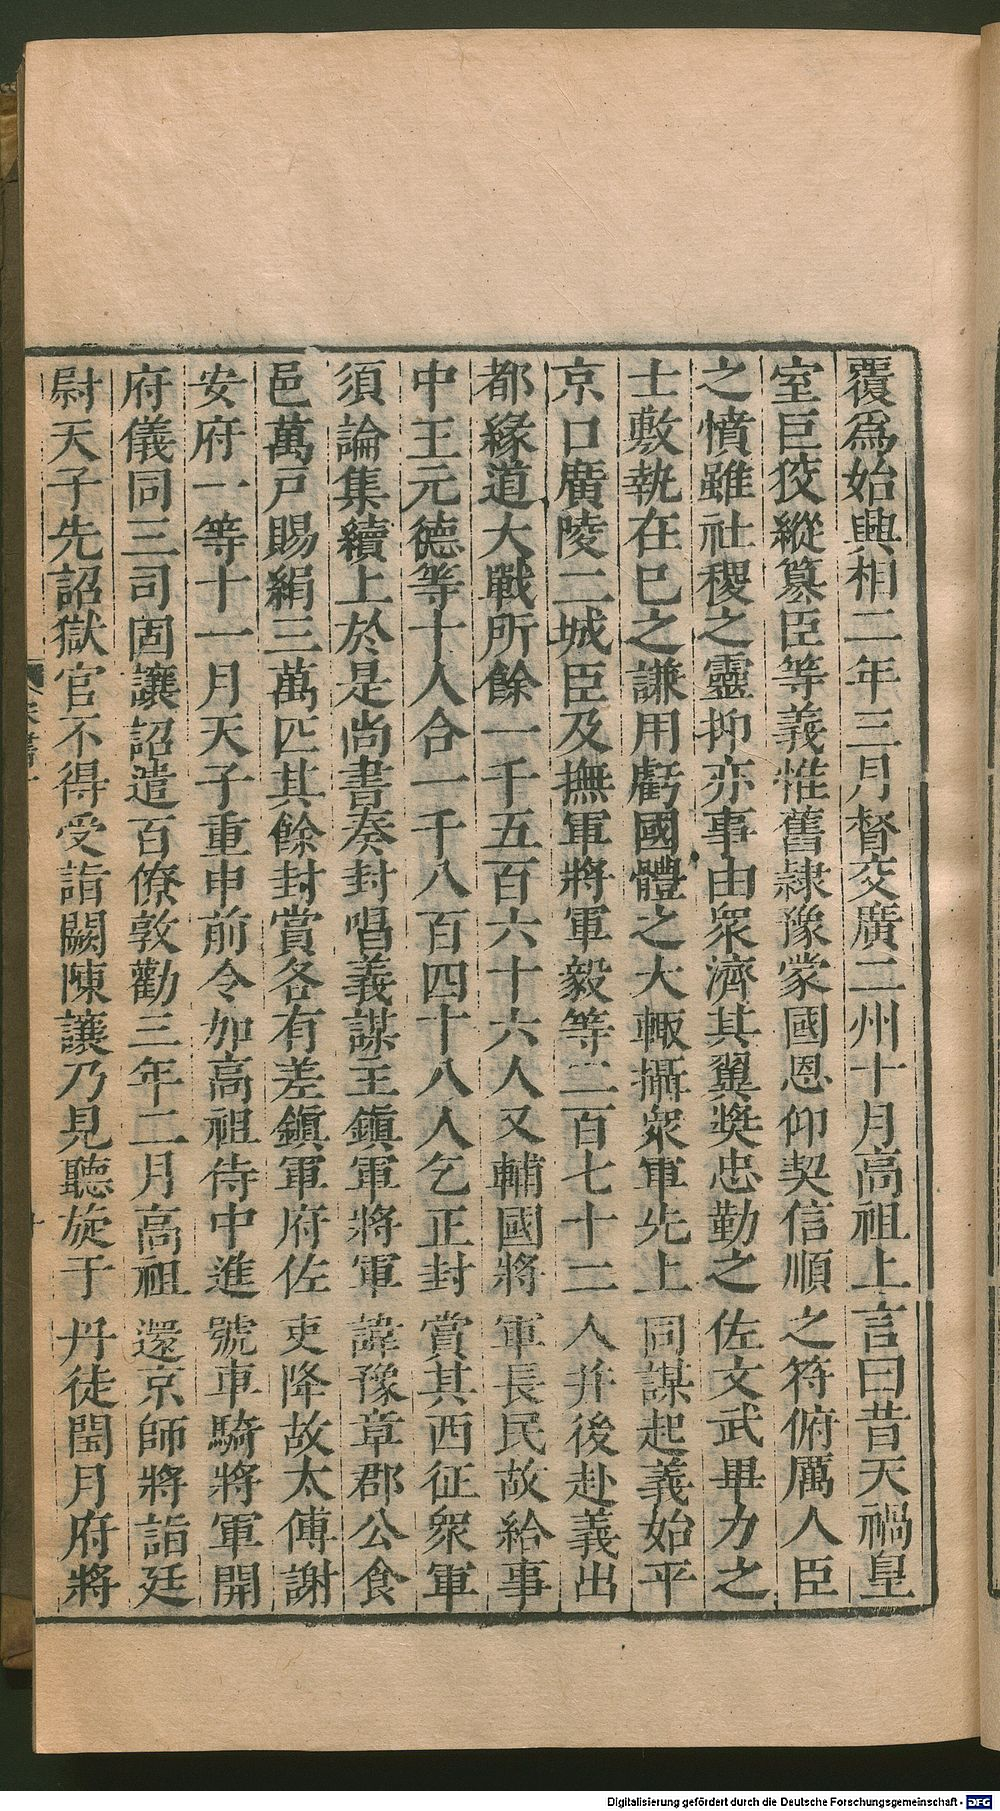 覆爲始興相二年三月督交廣二州十月高祖上言曰昔天禍皇
室巨狡縱篡臣等義惟舊隷豫蒙國恩仰契信順之符俯厲人臣
之憤雖社稷之靈抑亦事由衆濟其翼奬忠勤之佐文武畢力之
士敷執在己之謙用虧國體之大輒攝衆軍先上同謀起義始平
京口廣陵二城臣及撫軍將軍毅等二百七十二人并後赴義出
都緣道大戰所餘一千五百六十六人又輔國將軍長民故給事
中王元德等十人合一千八百四十八人乞正封賞其西征衆軍
須論集續上於是尚書奏封唱義謀主鎭軍將軍諱豫章郡公食
邑萬戸賜絹三萬匹其餘封賞各有差鎭軍府佐吏降故太傅謝
安府一等十一月天子重申前令加高祖侍中進號車騎將軍開
府儀同三司固讓詔遣百僚敦勸三年二月高祖還京師將詣廷
尉天子先詔獄官不得受詣闕陳讓乃見聽旋于丹徒閏月府將
Digitalisierung gefördert durch die Deutsche Forschungsgemeinschaft - DFG